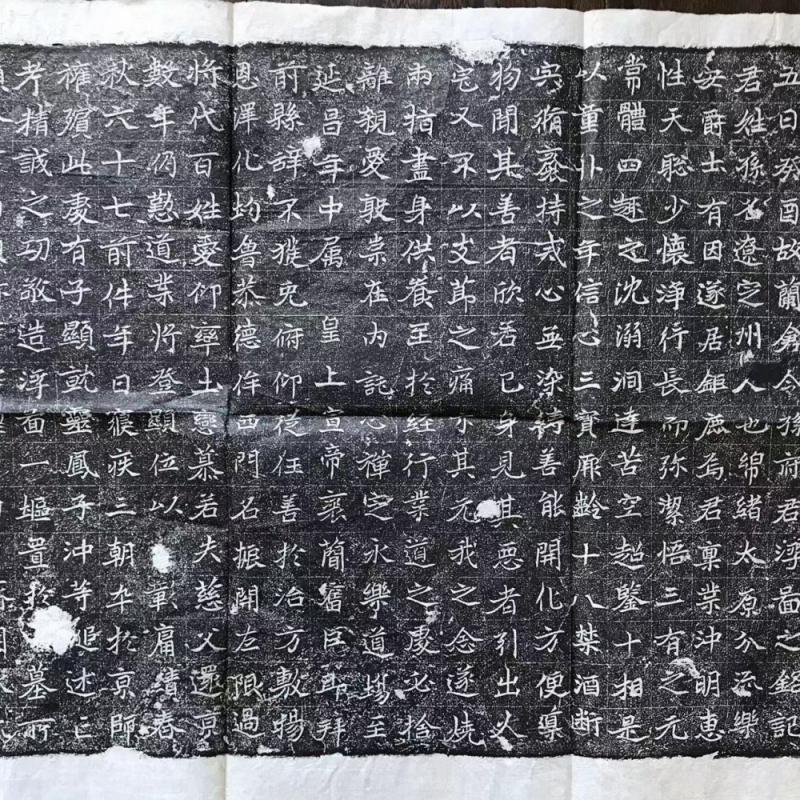 五日癸酉故蘭倉令孫府君浮啚之銘記
君姓孫名遼定州人也綿緒太原分流樂
安爵土有因遂居鉅鹿焉君稟業沖明惠
性天聡少懷淨行長而弥潔悟三有之无
常體四趣之沈溺洞達苦空超鑒十相是
以童丱之年信心三寶厥齡十八禁酒断
宍脩齋持戒心無染縛善能開化方便導
物聞其善者欣若已身見其惡者引出火
宅又不以支節之痛示其无我之念遂燒
兩指盡身供養至於經行業道之處必捨
離親愛敦崇在內託心禪定永樂道場至
延昌年中属皇上宣帝褒簡舊臣旨拜
前縣辞不獲免俯仰從任善於治方敷揚
恩澤化均魯恭德侔西門名振關左限過
將代百姓愛仰率土戀慕若失慈父還京
數年仍懃道業將登顯位以彰庸績春
秋六十七前件年日寢疾三朝卒於京師
權殯此處有子顯就靈鳳子沖等追述亡
考精誠之功敬造浮啚一堰置於墓所